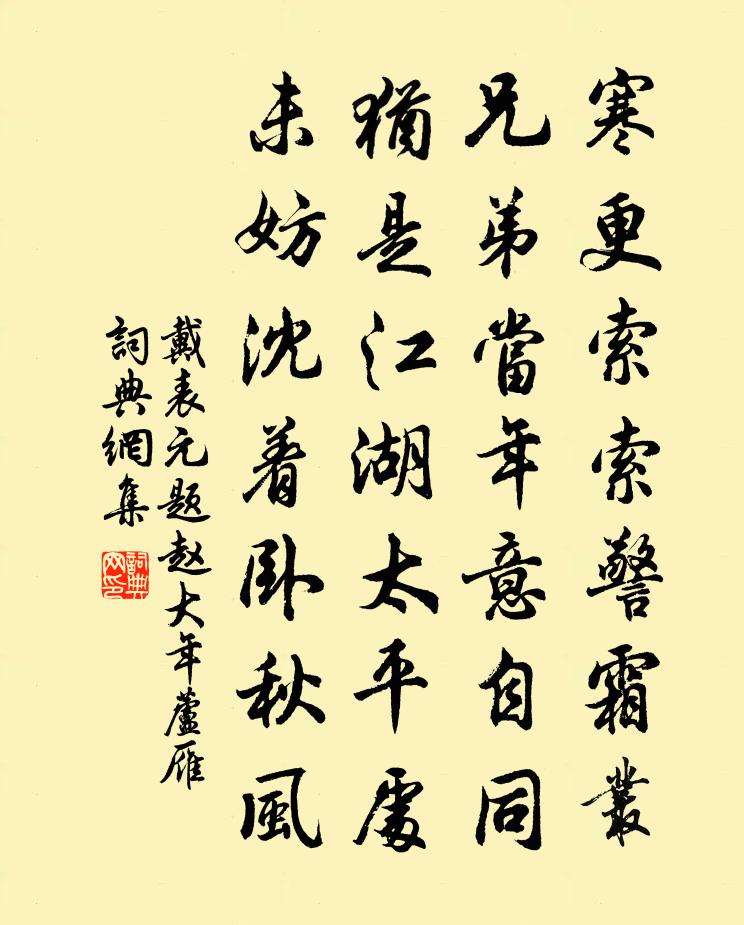 寒更索索警霜叢
兄弟當年意自同
猶是江湖太平處
未妨沈着卧秋風
戴表元题赵大年蘆雁
詞典網集
詞典網印